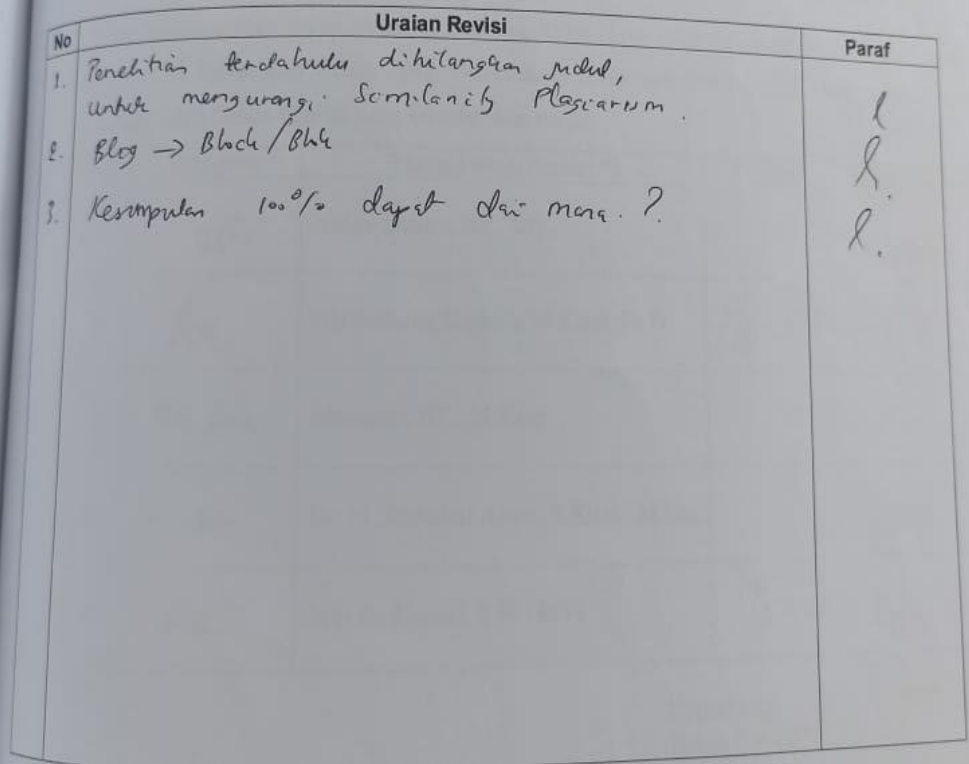 No Uraian Revisi Paraf
1. Penelitian terdahulu dihilangkan judul,
untuk mengurangi Similarity Plagiarism.
2. Blog → Block / Blok
3. Kesimpulan 100% dapat dari mana. ?